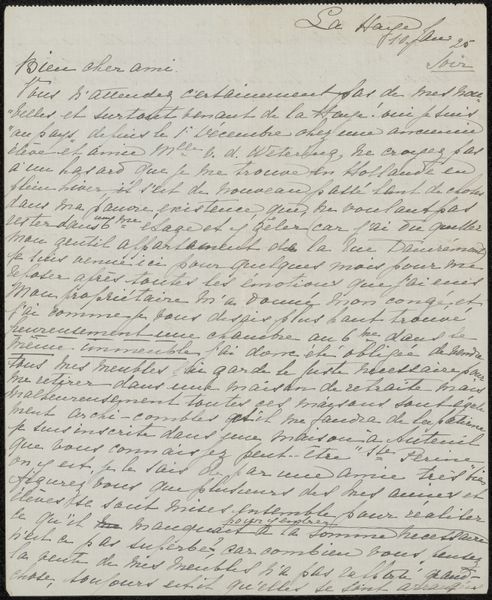 La Haye
10 Jan 25
Soir
Bien cher ami.
Vous n'attendez certainement pas de mes nou-
velles et surtout venant de la Haye! oui je suis
"au pays" depuis le 1er Decembre chez une ancienne
élève et amie Mlle v. d. Wetering, ne croyez pas
à un hasard que je me trouve en Hollande en
plein hiver, il s'est de nouveau passé tant de choses
dans ma pauvre existence que, ne voulant pas
rester dans 6me étage et y geler car j'ai du quitter
mon gentil appartement de la rue Damrémont
je suis venue ici pour quelques mois pour me
reposer après toutes les emotions que j'ai eues
Mon propriétaire m'a donné mon congé, et
j'ai comme je vous desais plus haut trouvé
heureusement une chambre au 6me dans le
même immeuble, j'ai donc été obligée de vendre
tous mes meubles j'ai gardé le juste necessaire pour
me retirer dans une maison de retraite mais
malheureusement toutes ces maisons sont égale-
ment archi-combles et il me faudra de la patience
je suis inscrite dans une maison à Auteuil
que vous connaissez peut-être "Ste Perine"
on y est, je le sais par une amie très bien
Figurez vous que plusieurs des mes amies et
élèves se sont mises ensemble pour réaliser
pour y entrer
ce qu'il manquait à la somme necessaire
n'est ce pas superbe, car combien vous pensez
la vente de mes meubles n'a pas rapporté grand
chose, toujours est il qu'elles se sont